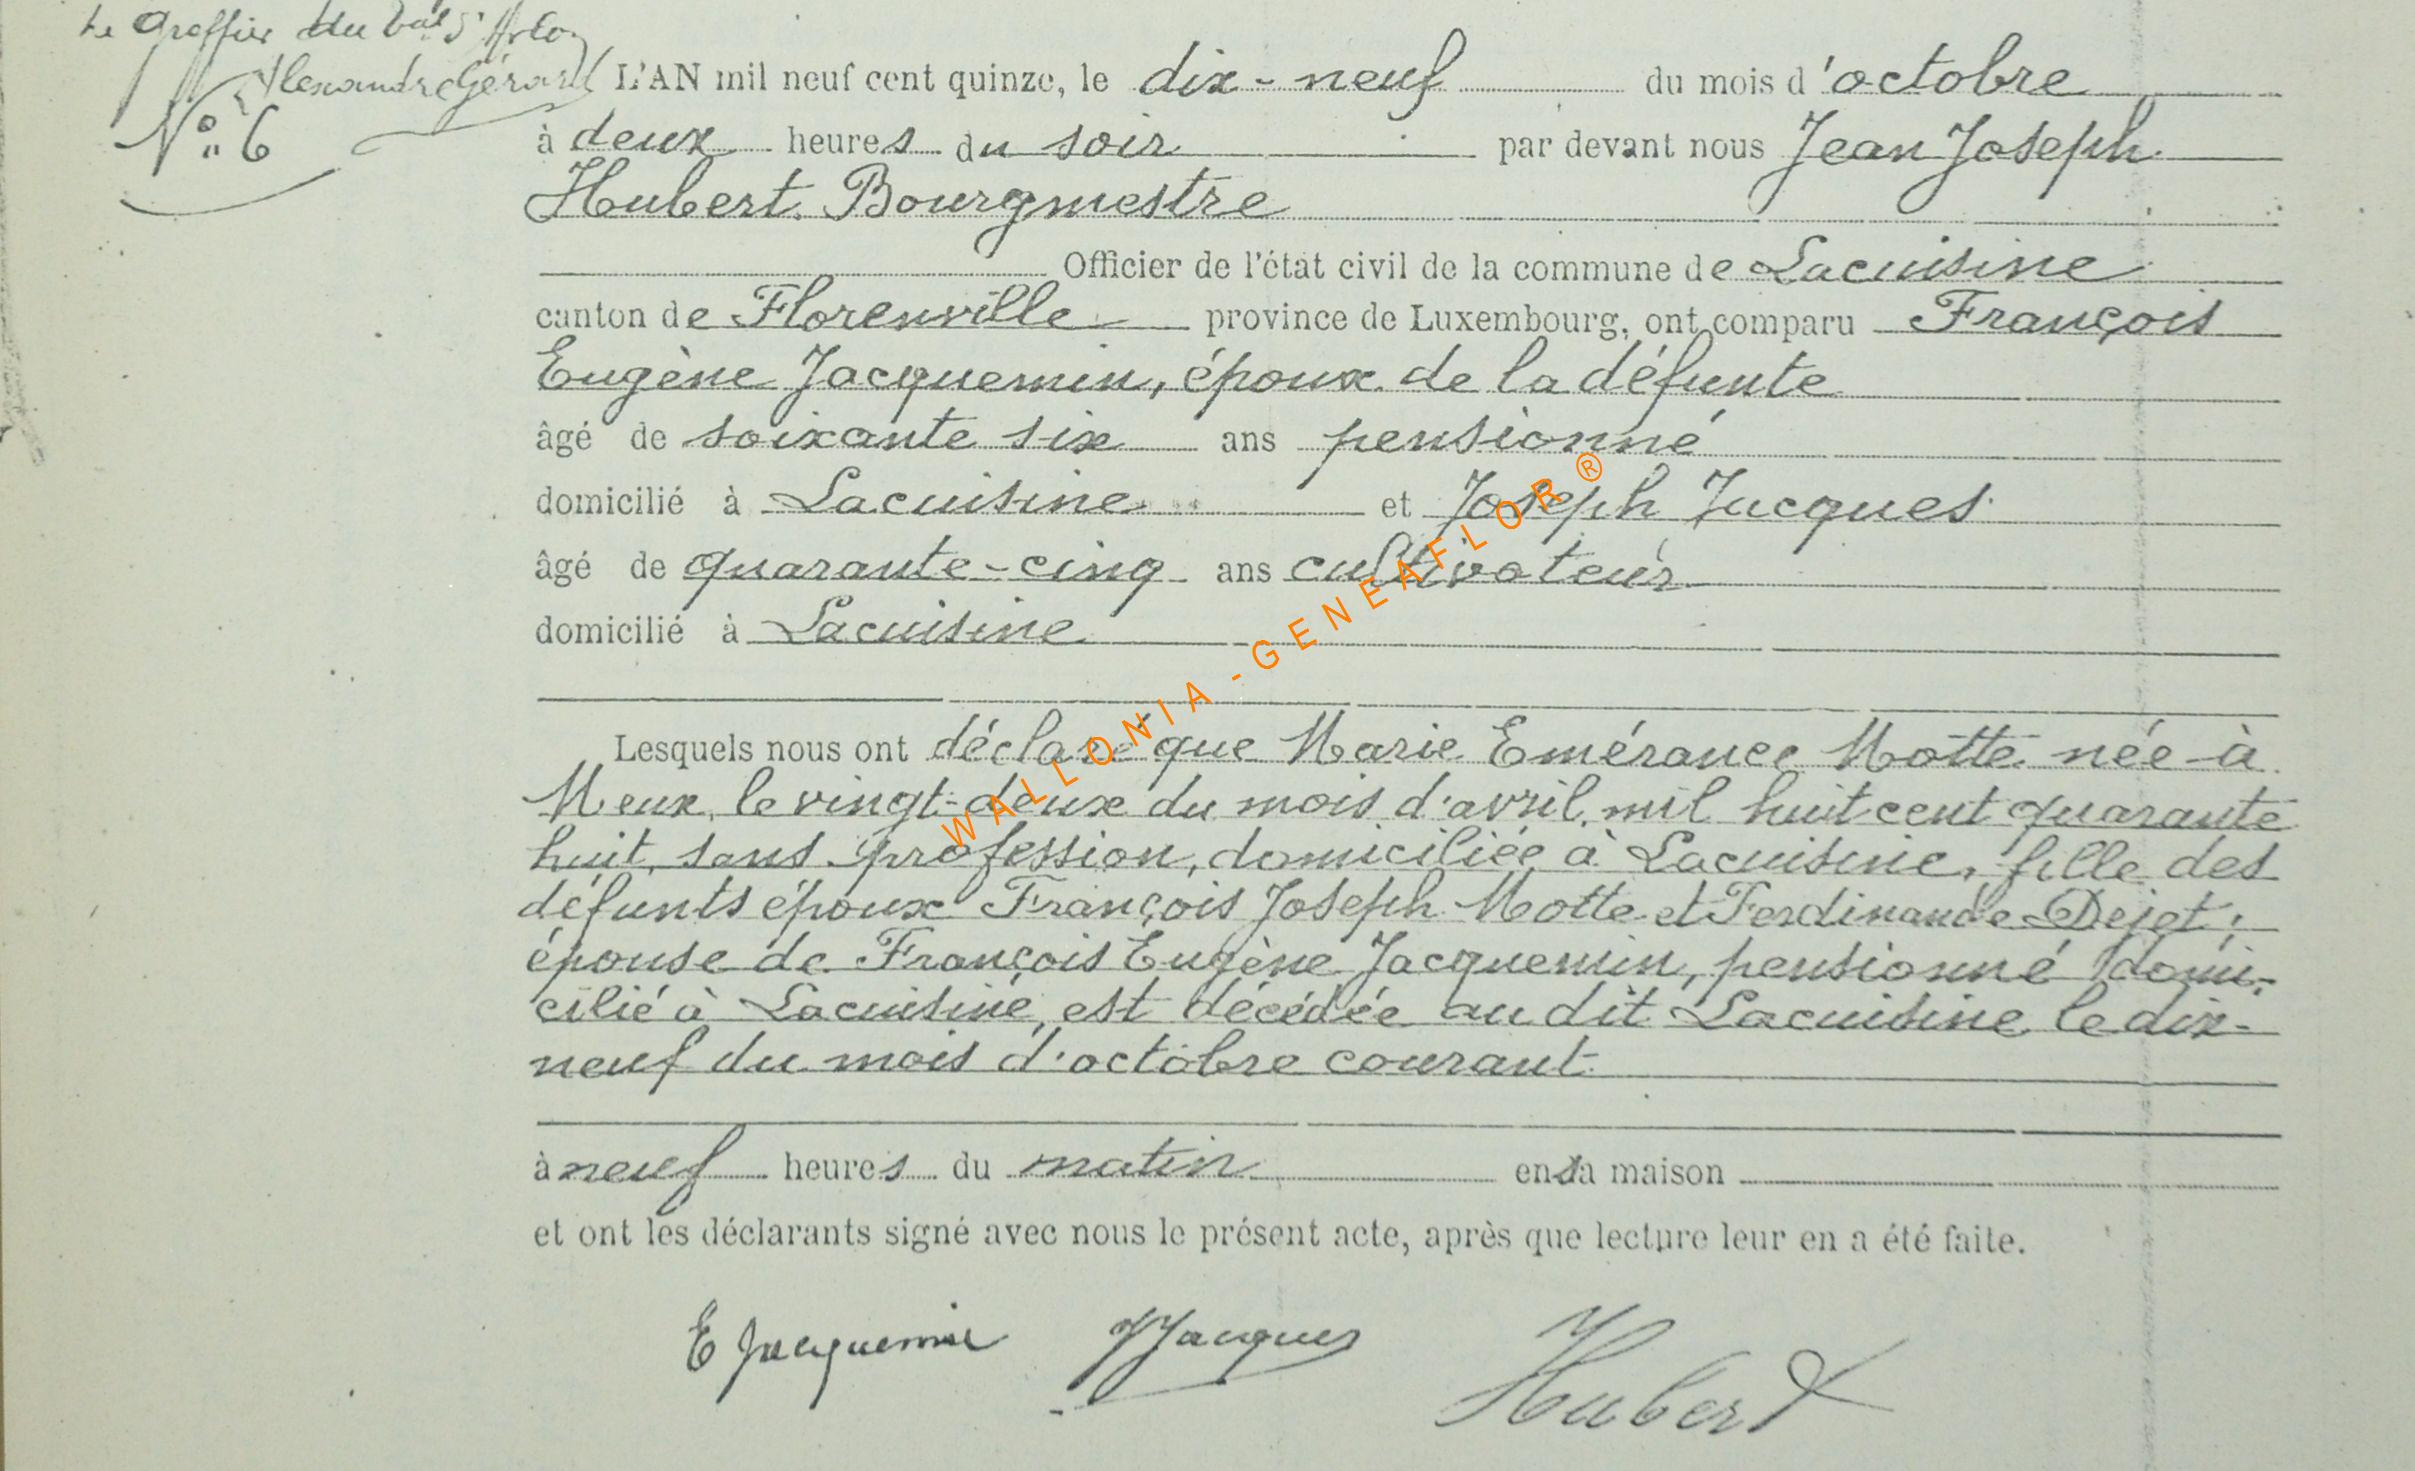 Le Greffier du Val d'Arlon
Alexandre Gérard
N° 6
L'AN mil neuf cent quinze, le dix-neuf du mois d'octobre
à deux heures du soir par devant nous Jean Joseph
Hubert. Bourgmestre
Officier de l'état civil de la commune de Lacuisine
canton de Florenville province de Luxembourg, ont comparu François
Eugène Jacquemin, époux de la défunte
âgé de soixante six ans pensionné
domicilié à Lacuisine et Joseph Jacques
âgé de quarante-cinq ans cultivateur
domicilié à Lacuisine
Lesquels nous ont déclaré que Marie Emérance Motte née à
Meux, le vingt-deux du mois d'avril mil huit cent quarante
huit, sans profession, domiciliée à Lacuisine, fille des
défunts époux François Joseph Motte et Ferdinande Dejet;
épouse de François Eugène Jacquemin, pensionné domi-
cilié à Lacuisine, est décédée au dit Lacuisine le dix-
neuf du mois d'octobre courant
à neuf heures du matin en sa maison
et ont les déclarants signé avec nous le présent acte, après que lecture leur en a été faite.
E Jacquemin JJacques Hubert
WALLONIA-GENEAFLOR®